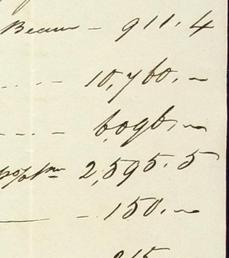 Beaum – 911.4
10,760.~
6,096.~
2,595.5
– 150.~
215